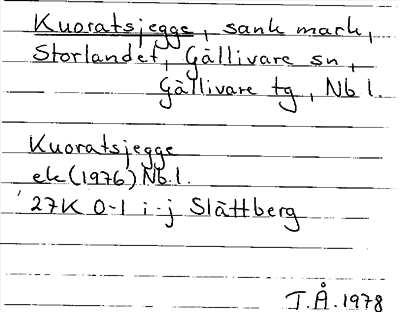 Kuoratsjegge, sank mark,
Storlandet, Gällivare sn,
Gällivare tg, Nb l.
Kuoratsjegge
ek (1976) Nb.l.
27K 0-1 i-j Slättberg
T.Å. 1978